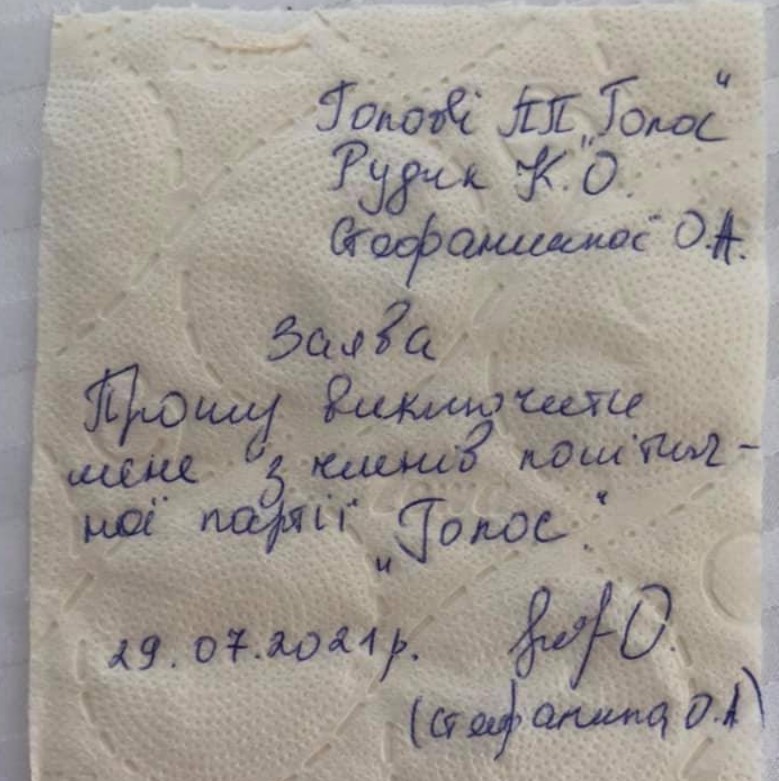 Голові ПП „Голос"
Рудик К.О.
Стефанишиної О.А.
Заява
Прошу виключити
мене з членів політич-
ної партії „Голос".
29.07.2021р.
(Стефанишина О.А)